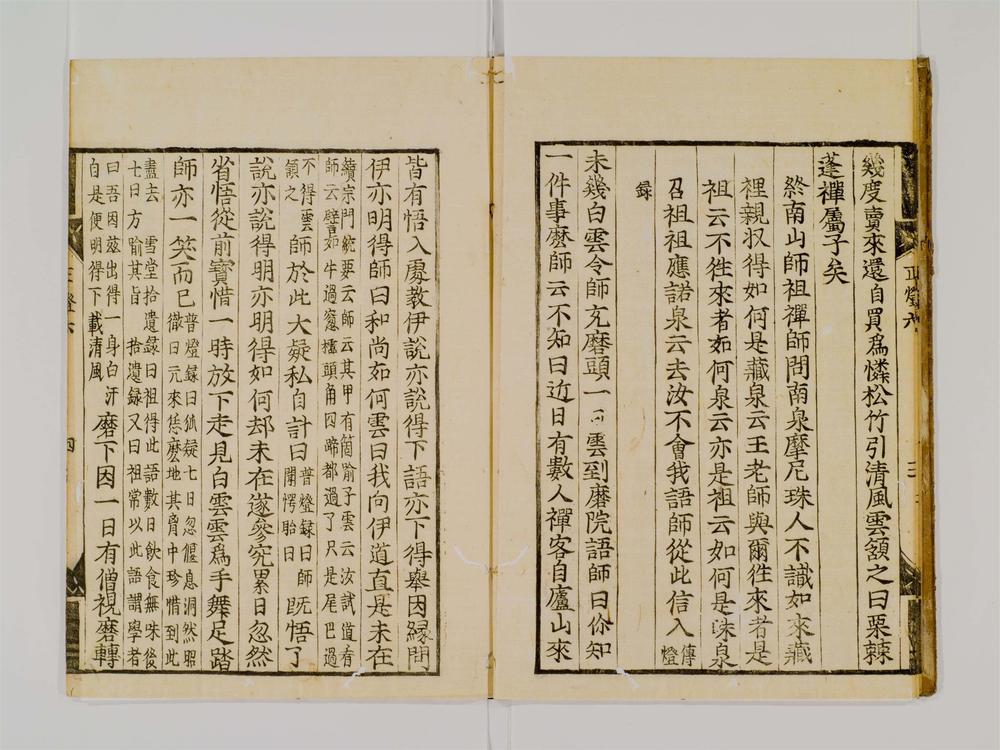 幾度賣來還自買爲憐松竹引清風雲頷之曰栗棘
蓬禪屬子矣
終南山師祖禪師問南泉摩尼珠人不識如來藏
裡親収得如何是藏泉云王老師與爾徃來者是
祖云不徃來者如何泉云亦是祖云如何是珠泉
召祖祖應諾泉云去汝不會我語師從此信入傳燈
録
未幾白雲令師充磨頭一日雲到磨院語師曰你知
一件事麽師云不知曰近日有數人禪客自廬山來
正燈六
三
皆有悟入處教伊說亦說得下語亦下得舉因縁問
伊亦明得師曰和尚如何雲曰我向伊道直是未在
續宗門統要云師云某甲有箇喻子雲云汝試道看
師云譬如牛過窻櫺頭角四蹄都過了只是尾巴過
不得雲
頷之
師於此大疑私自計曰
普燈録曰師
聞愕眙曰
既悟了
說亦說得明亦明得如何却未在遂參究累日忽然
省悟從前寳惜一時放下走見白雲雲爲手舞足蹈
師亦一笑而已
普燈録曰狐疑七日忽偃息洞然昭
徹曰元來恁麽地其胷中珍惜到此
盡去　雪堂拾遺録曰祖得此語數日飲食無味後
七日方喻其旨　拾遺録又曰祖常以此語謂學者
曰吾因茲出得一身白汗
自是便明得下載清風
磨下因一日有僧視磨轉
正燈六
四